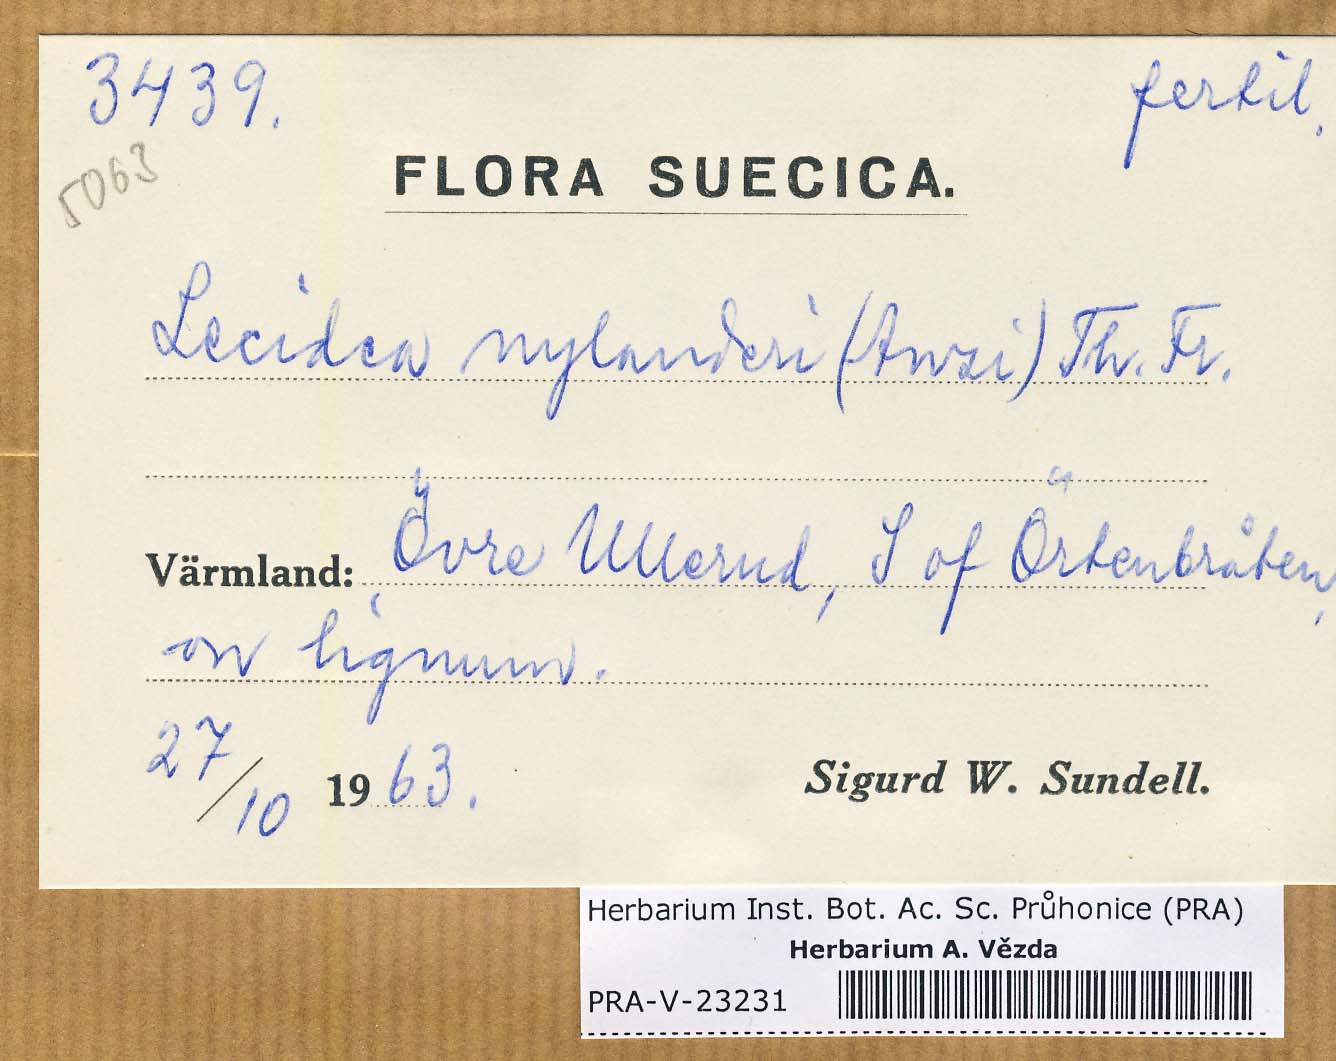 3439. fertil.
5063
FLORA SUECICA.
Lecidea nylanderi (Anzi) Th. Fr.
Värmland: Övre Ullerud, S of Örtenbråten,
on lignum.
27/10 1963.
Sigurd W. Sundell.
Herbarium Inst. Bot. Ac. Sc. Průhonice (PRA)
Herbarium A. Vězda
PRA-V-23231